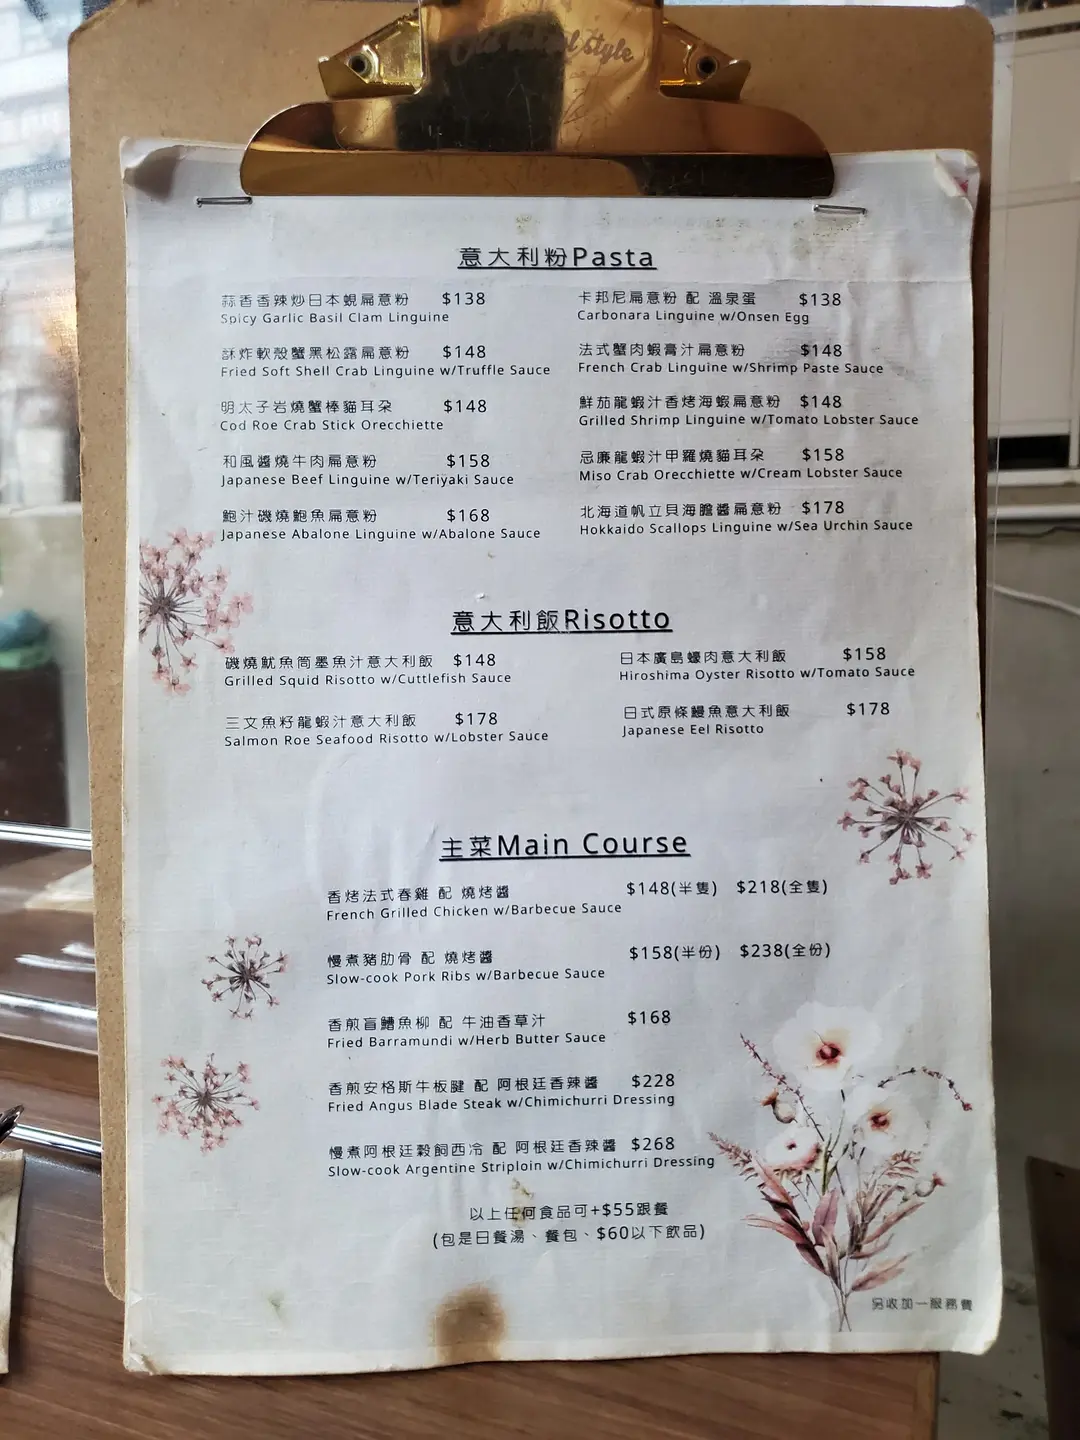 style
意大利粉Pasta
蒜香香辣炒日本蜆扁意粉 $138
Spicy Garlic Basil Clam Linguine
卡邦尼扁意粉 配 溫泉蛋 $138
Carbonara Linguine w/Onsen Egg
酥炸軟殼蟹黑松露扁意粉 $148
Fried Soft Shell Crab Linguine w/Truffle Sauce
法式蟹肉蝦膏汁扁意粉 $148
French Crab Linguine w/Shrimp Paste Sauce
明太子岩燒蟹棒貓耳朵 $148
Cod Roe Crab Stick Orecchiette
鮮茄龍蝦汁香烤海蝦扁意粉 $148
Grilled Shrimp Linguine w/Tomato Lobster Sauce
和風醬燒牛肉扁意粉 $158
Japanese Beef Linguine w/Teriyaki Sauce
忌廉龍蝦汁甲羅燒貓耳朵 $158
Miso Crab Orecchiette w/Cream Lobster Sauce
鮑汁磯燒鮑魚扁意粉 $168
Japanese Abalone Linguine w/Abalone Sauce
北海道帆立貝海膽醬扁意粉 $178
Hokkaido Scallops Linguine w/Sea Urchin Sauce
意大利飯Risotto
磯燒魷魚筒墨魚汁意大利飯 $148
Grilled Squid Risotto w/Cuttlefish Sauce
日本廣島蠔肉意大利飯 $158
Hiroshima Oyster Risotto w/Tomato Sauce
三文魚籽龍蝦汁意大利飯 $178
Salmon Roe Seafood Risotto w/Lobster Sauce
日式原條鰻魚意大利飯 $178
Japanese Eel Risotto
主菜Main Course
香烤法式春雞 配 燒烤醬 $148(半隻) $218(全隻)
French Grilled Chicken w/Barbecue Sauce
慢煮豬肋骨 配 燒烤醬 $158(半份) $238(全份)
Slow-cook Pork Ribs w/Barbecue Sauce
香煎盲鰽魚柳 配 牛油香草汁 $168
Fried Barramundi w/Herb Butter Sauce
香煎安格斯牛板腱 配 阿根廷香辣醬 $228
Fried Angus Blade Steak w/Chimichurri Dressing
慢煮阿根廷穀飼西冷 配 阿根廷香辣醬 $268
Slow-cook Argentine Striploin w/Chimichurri Dressing
以上任何食品可+$55跟餐
(包是日餐湯、餐包、$60以下飲品)
另收加一服務費